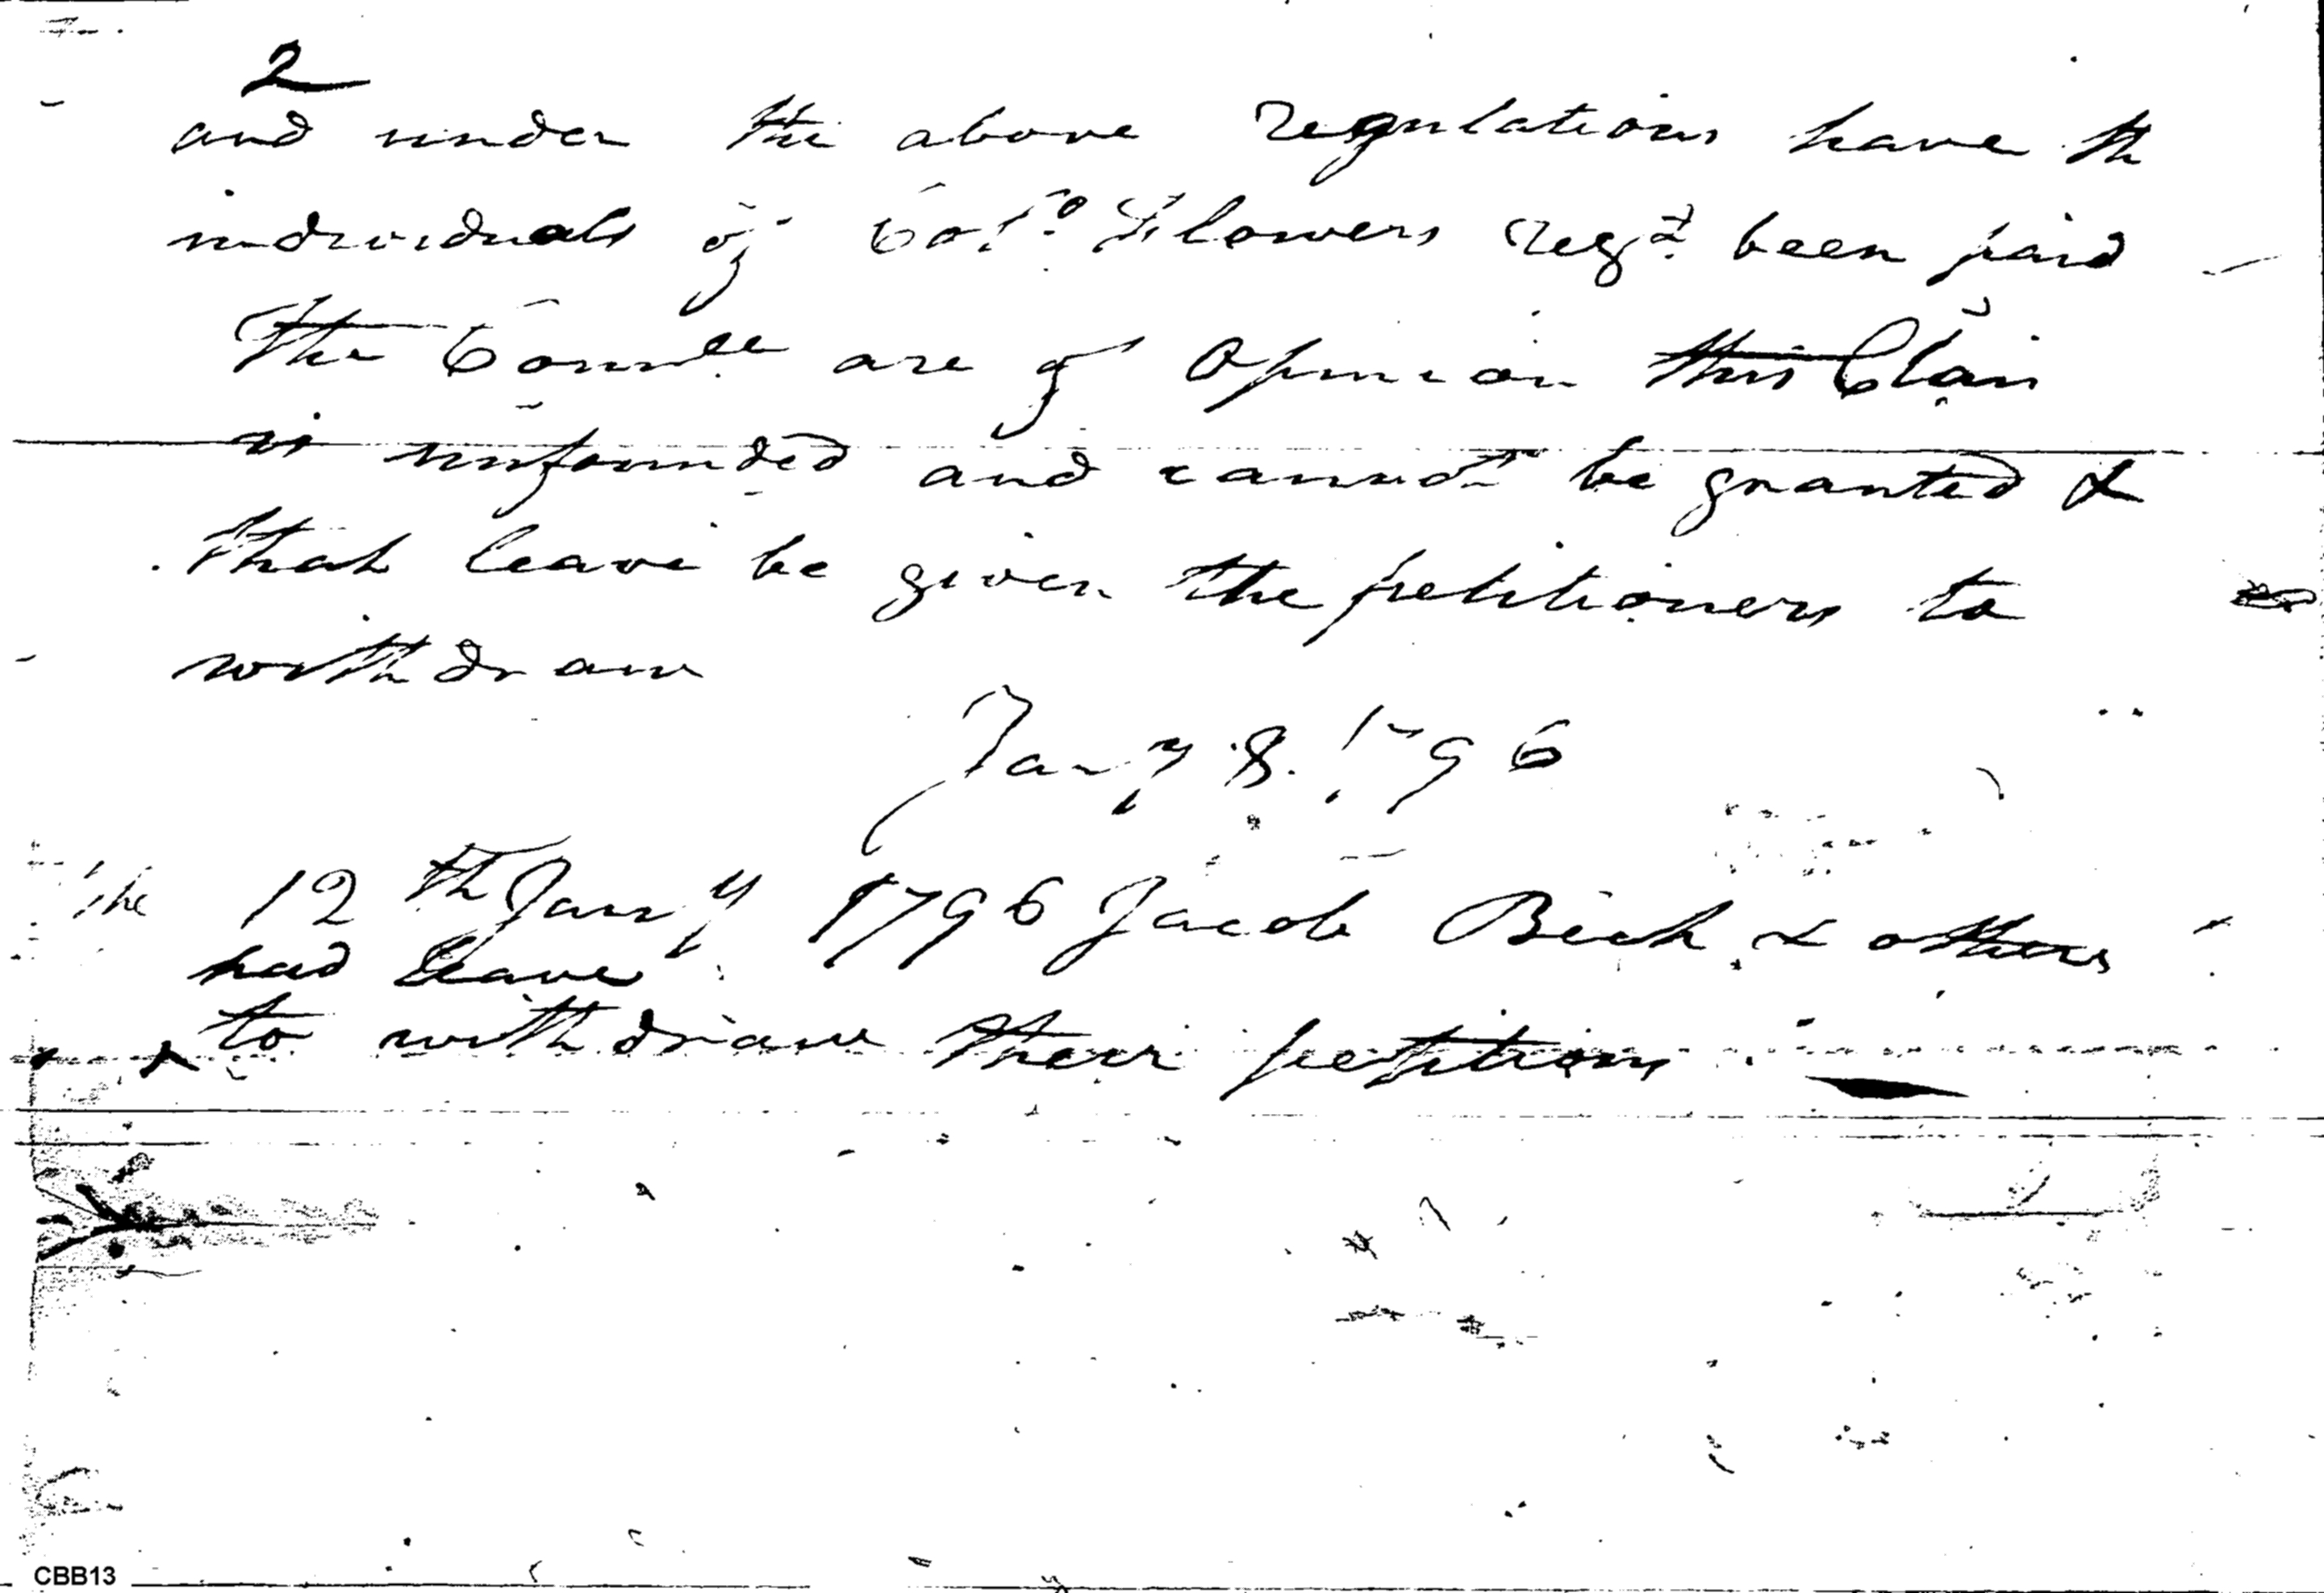 2
and under the above regulations have th
individuals of Colo. Flowers regt. been paid
The Commee are of Opinion this Claim
is unfounded and cannot be granted &
that leave be given the petitioners to
withdraw
Jany 8. 1796
The 12th Jany 1796 Jacob & others
had leave
to withdraw their petitions
CBB13